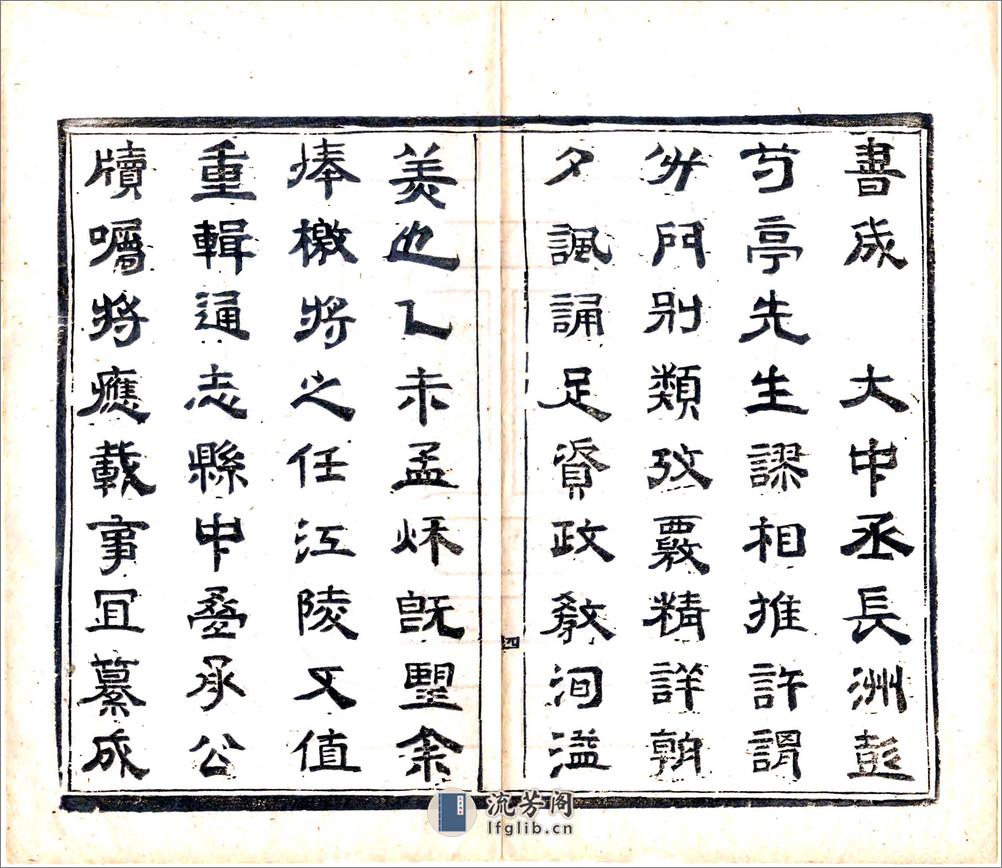 書成　大中丞長洲彭
芍亭先生謬相推許謂
分門別類攷覈精詳朝
夕諷誦足資政教洵溢
四
美也乙未孟秋既朢余
捧檄將之任江陵又值
重輯通志縣中疊承公
牘囑將應載事冝纂成
流芳阁
lfglib.cn